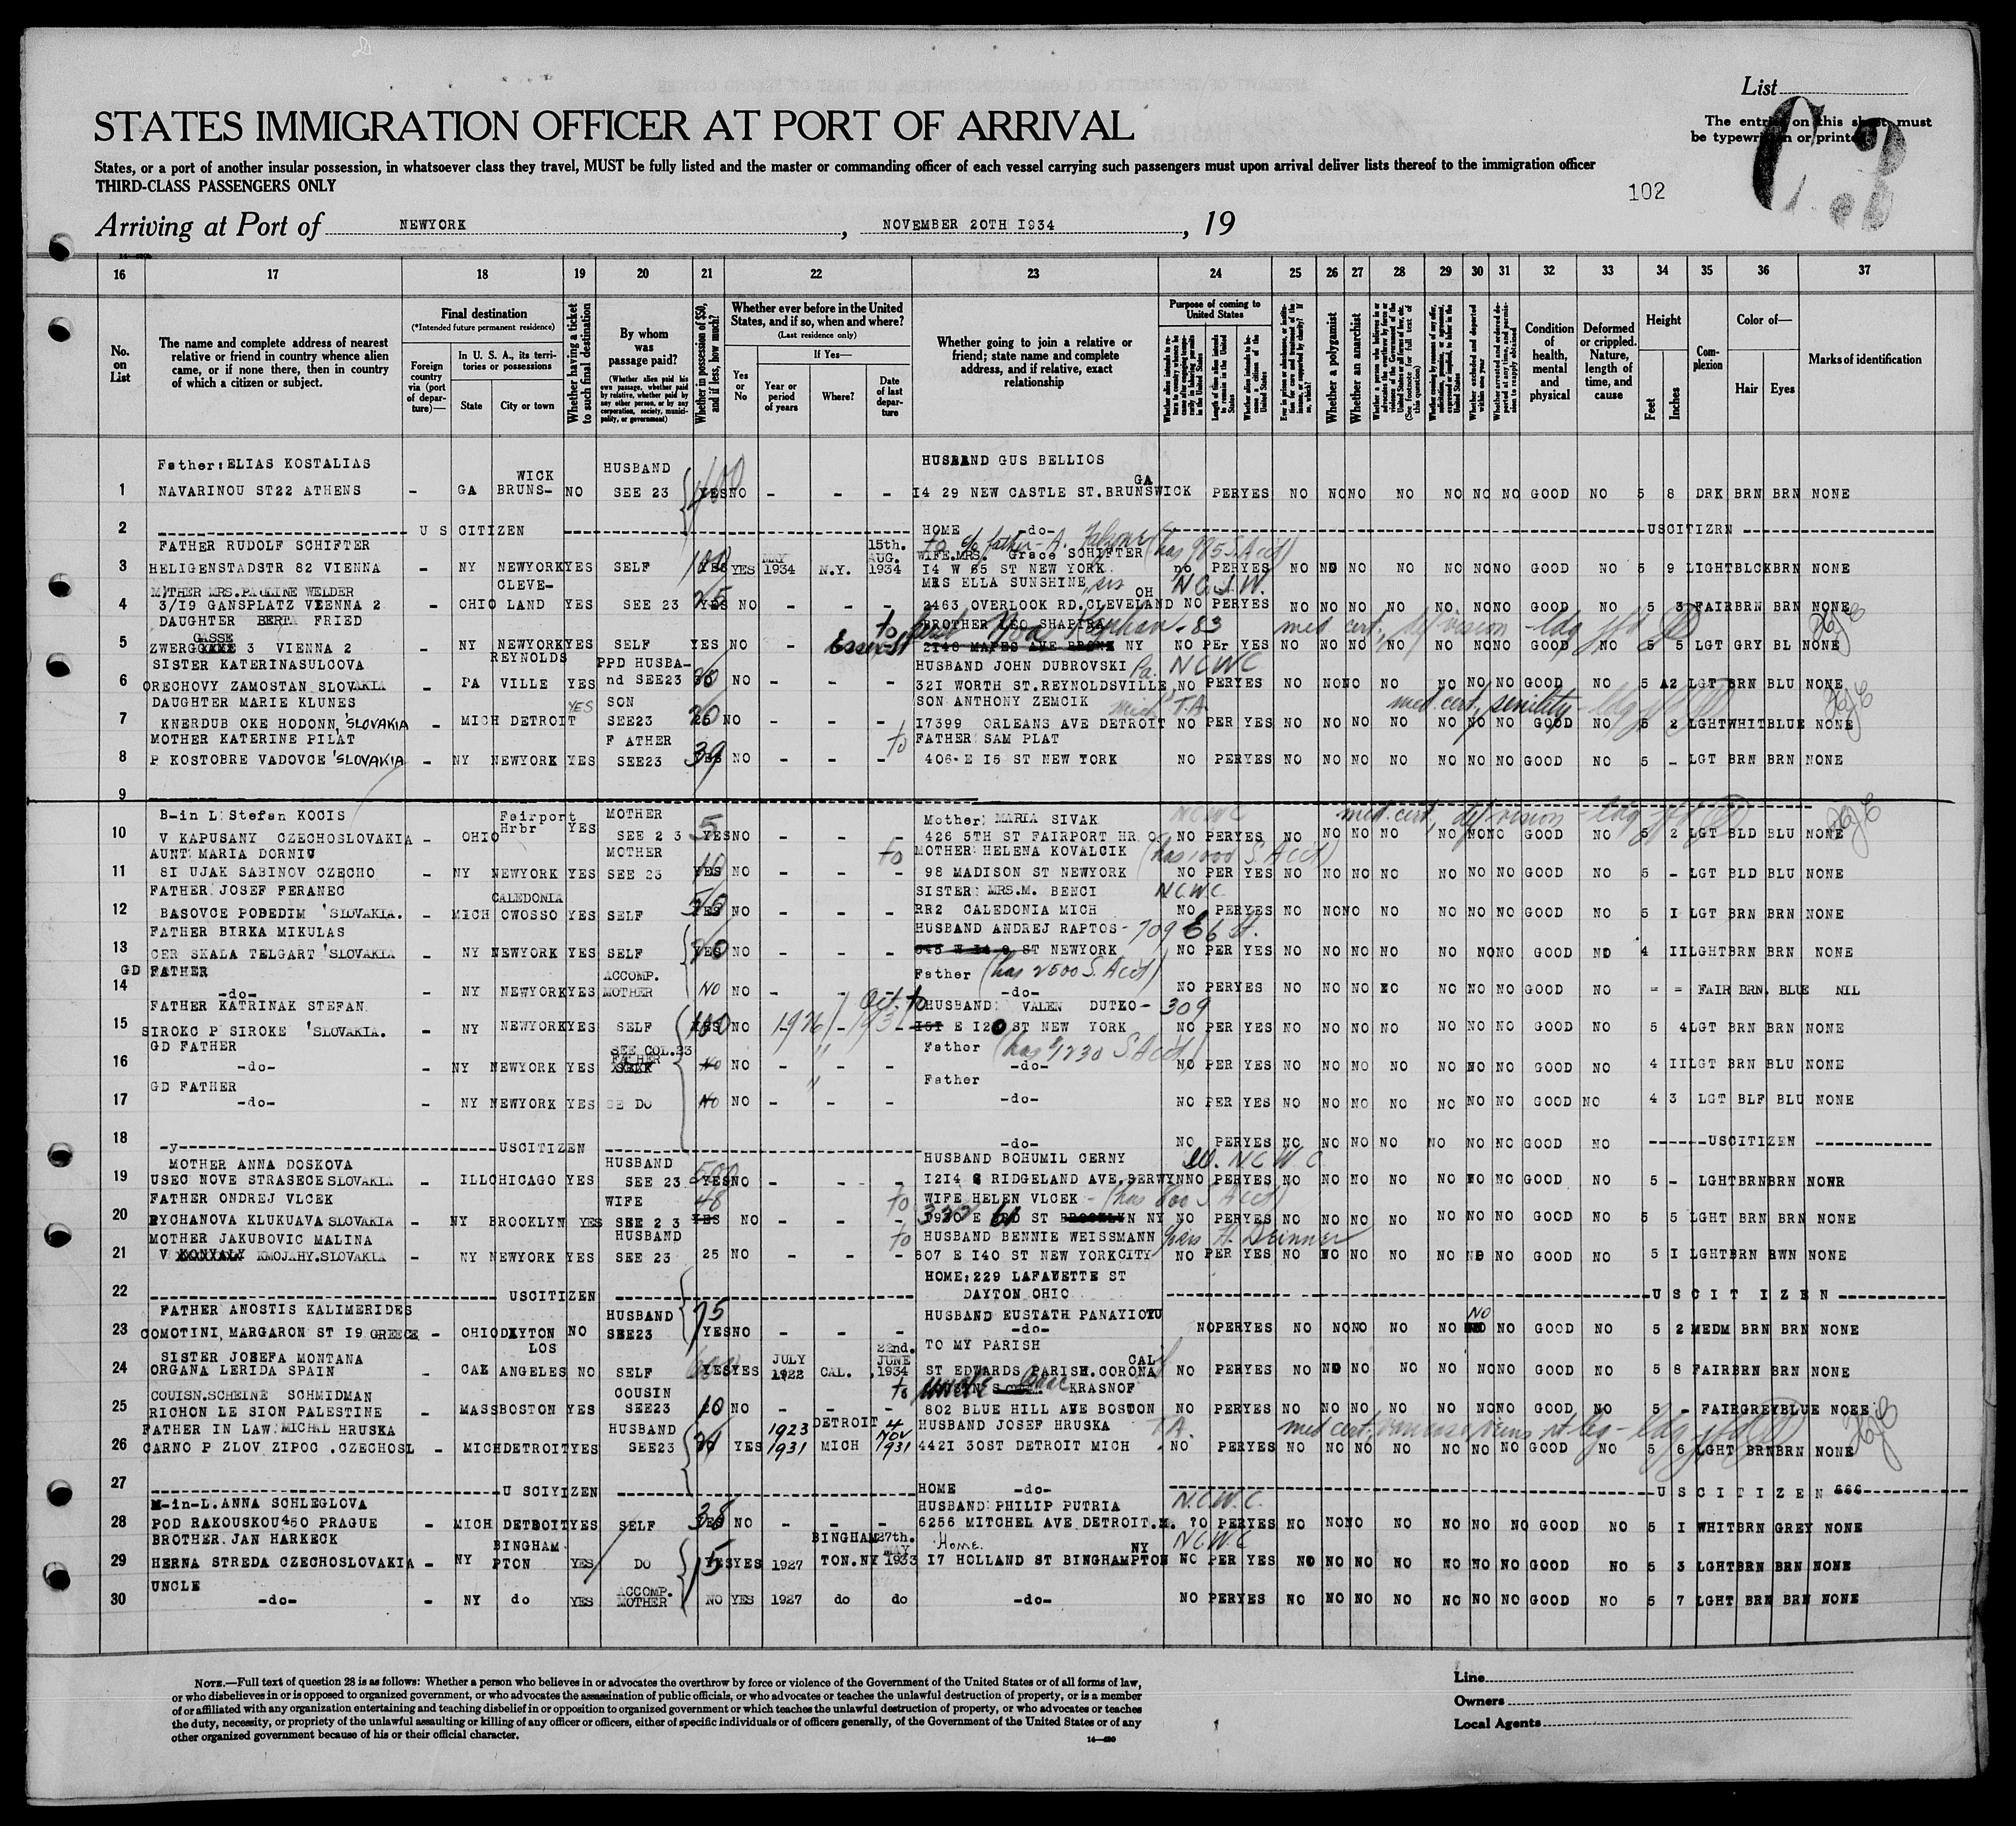 List
The entries on this sheet must
be typewritten or printed
C 3
STATES IMMIGRATION OFFICER AT PORT OF ARRIVAL
States, or a port of another insular possession, in whatsoever class they travel, MUST be fully listed and the master or commanding officer of each vessel carrying such passengers must upon arrival deliver lists thereof to the immigration officer
THIRD-CLASS PASSENGERS ONLY
102
Arriving at Port of NEWYORK , NOVEMBER 20TH 1934 , 19
16 17 18 19 20 21 22 23 24 25 26 27 28 29 30 31 32 33 34 35 36 37
No. on List
The name and complete address of nearest relative or friend in country whence alien came, or if none there, then in country of which a citizen or subject.
Final destination
(*Intended future permanent residence)
Foreign country via (port of departure)—
In U. S. A., its territories or possessions
State
City or town
Whether having a ticket to such final destination
By whom was passage paid?
(Whether alien paid his own passage, whether paid by relative, whether paid by any other person, or by any corporation, society, municipality, or government)
Whether in possession of $50, and if less, how much?
Whether ever before in the United States, and if so, when and where?
(Last residence only)
Yes or No
If Yes—
Year or period of years
Where?
Date of last departure
Whether going to join a relative or friend; state name and complete address, and if relative, exact relationship
Purpose of coming to United States
Length of time alien intends to remain in the United States
Whether alien intends to become a citizen of the United States
Whether a polygamist
Whether an anarchist
(See footnote for full text of this question)
Whether excluded and deported within one year
Condition of health, mental and physical
Deformed or crippled. Nature, length of time, and cause
Height
Feet
Inches
Complexion
Color of—
Hair
Eyes
Marks of identification
Father:ELIAS KOSTALIAS WICK HUSBAND HUSBAND GUS BELLIOS GA
1 NAVARINOU ST22 ATHENS - GA BRUNS- NO SEE 23 YES NO - - - 14 29 NEW CASTLE ST.BRUNSWICK PER YES NO NO NO NO NO NO NO GOOD NO 5 8 DRK BRN BRN NONE
2 U S CITIZEN HOME -do- USCITIZRN
FATHER RUDOLF SCHIFTER 15th. WIFE.MRS. Grace SCHIFTER (has 985 S.Acct)
3 HELIGENSTADSTR 82 VIENNA - NY NEWYORK YES SELF 100 YES YES MAY 1934 N.Y. AUG. 1934 14 W 65 ST NEW YORK no PER YES NO NO NO NO NO NO NO GOOD NO 5 9 LIGHT BLCK BRN NONE
MOTHER MRS.PAULINE WELDER CLEVE- MRS ELLA SUNSHINE sis OH N.C.J.W.
4 3/19 GANSPLATZ VIENNA 2 - OHIO LAND YES SEE 23 25 YES NO - - - 2463 OVERLOOK RD.CLEVELAND NO PER YES NO NO NO NO NO NO NO GOOD NO 5 3 FAIR BRN BRN NONE
DAUGHTER BERTA FRIED GASSE to BROTHER LEO SHAPIRA - 83 med cert. def vision
5 ZWERG 3 VIENNA 2 - NY NEWYORK YES SELF YES NO - Essex St 2148 MAPES AVE BRONX NY NO PEr YES NO NO NO NO NO NO NO GOOD NO 5 5 LGT GRY BL NONE
SISTER KATERINASULCOVA REYNOLDS PPD HUSBA- HUSBAND JOHN DUBROVSKI Pa. N.C.W.C
6 ORECHOVY ZAMOSTAN SLOVAKIA - PA VILLE YES nd SEE23 NO - - - 321 WORTH ST.REYNOLDSVILLE NO PER YES NO NO NO NO NO NO NO GOOD NO 5 2 LGT BRN BLU NONE
DAUGHTER MARIE KLUNES YES SON SON ANTHONY ZEMCIK T.A. med cert, senility
7 KNERDUB OKE HODONN,'SLOVAKIA - MICH DETROIT SEE23 20 NO - - - 17399 ORLEANS AVE DETROIT NO PER YES NO NO NO NO NO NO NO GOOD NO 5 2 LGHT WHIT BLUE NONE
MOTHER KATERINE PILAT F ATHER to FATHER SAM PLAT
8 P KOSTOBRE VADOVCE 'SLOVAKIA - NY NEWYORK YES SEE23 39 NO - - - 406- E 15 ST NEW YORK NO PER YES NO NO NO NO NO NO NO GOOD NO 5 - LGT BRN BRN NONE
9
B-in L: Stefan KOCIS Fairport MOTHER Mother: MARIA SIVAK NCWC med. cert, def vision
10 V KAPUSANY CZECHOSLOVAKIA - OHIO Hrbr YES SEE 2 3 5 YES NO - - - 426 5TH ST FAIRPORT HR O. NO PER YES NO NO NO NO NO NO NO GOOD NO 5 2 LGT BLD BLU NONE
AUNT MARIA DORNIU MOTHER to MOTHER HELENA KOVALCIK (has 1000 S.Acct)
11 SI UJAK SABINOV CZECHO - NY NEWYORK YES SEE 23 10 YES NO - - - 98 MADISON ST NEWYORK NO PER YES NO NO NO NO NO NO NO GOOD NO 5 - LGT BLD BLU NONE
FATHER JOSEF FERANEC CALEDONIA SISTER MRS.M. BENCI N.C.W.C.
12 BASOVCE POBEDIM 'SLOVAKIA. - MICH OWOSSO YES SELF YES NO - - - RR2 CALEDONIA MICH NO PER YES NO NO NO NO NO NO NO GOOD NO 5 1 LGT BRN BRN NONE
FATHER BIRKA MIKULAS HUSBAND ANDREJ RAPTOS - 709 E 6 St.
13 CER SKALA TELGART 'SLOVAKIA - NY NEWYORK YES SELF YES NO - - - ST NEWYORK NO PER YES NO NO NO NO NO NO NO GOOD NO 4 11 LGHT BRN BRN NONE
GD FATHER ACCOMP. Father (has 2500 S.Acct)
14 -do- - NY NEWYORK YES MOTHER NO NO - - - -do- NO PER YES NO NO NO NO NO NO NO GOOD NO = = FAIR BRN. BLUE NIL
FATHER KATRINAK STEFAN Oct. to HUSBAND: VALEN DUTKO - 309
15 SIROKC P SIROKE 'SLOVAKIA. - NY NEWYORK YES SELF 100 YES NO 1926 - 1931 - 151 E 120 ST NEW YORK NO PER YES NO NO NO NO NO NO NO GOOD NO 5 4 LGT BRN BRN NONE
GD FATHER SEE COL.23 Father (has $1230 S.Acct)
16 -do- - NY NEWYORK YES FATHER NO NO - - - -do- NO PER YES NO NO NO NO NO NO NO GOOD NO 4 11 LGT BRN BLU NONE
GD FATHER Father
17 -do- - NY NEWYORK YES SE DO NO NO - - - -do- NO PER YES NO NO NO NO NO NO NO GOOD NO 4 3 LGT BLF BLU NONE
18 -y- USCITIZEN -do- NO PER YES NO NO NO NO NO NO NO GOOD NO USCITIZEN
MOTHER ANNA DOSKOVA HUSBAND HUSBAND BOHUMIL CERNY N.C.W.C
19 USEC NOVE STRASECE SLOVAKIA - ILL CHICAGO YES SEE 23 500 YES NO - - - 1214 S RIDGELAND AVE,BERWYN NO PER YES NO NO NO NO NO NO NO GOOD NO 5 - LGHT BRN BRN NONR
FATHER ONDREJ VLCEK WIFE to WIFE HELEN VLCEK - (has 800 S.Acct)
20 RYCHANOVA KLUKUAVA SLOVAKIA - NY BROOKLYN YES SEE 2 3 48 YES NO - - - ST BROOKLYN NY NO PER YES NO NO NO NO NO NO NO GOOD NO 5 5 LGHT BRN BRN NONE
MOTHER JAKUBOVIC MALINA HUSBAND to HUSBAND BENNIE WEISSMANN
21 V KMOJAHY.SLOVAKIA - NY NEWYORK YES SEE 23 25 NO - - - 607 E 140 ST NEW YORKCITY NO PER YES NO NO NO NO NO NO NO GOOD NO 5 1 LGHT BRN BWN NONE
HOME: 229 LAFAUETTE ST
22 USCITIZEN DAYTON OHIO U S C I T I Z E N
FATHER ANOSTIS KALIMERIDES HUSBAND HUSBAND EUSTATH PANAYIOTU NO
23 COMOTINI, MARGARON ST 19 GREECE - OHIO DAYTON NO SEE23 75 YES NO - - - -do- NO PER YES NO NO NO NO NO NO GOOD NO 5 2 MEDM BRN BRN NONE
SISTER JOSEFA MONTANA LOS JULY 22nd. JUNE TO MY PARISH CAL
24 ORGANA LERIDA SPAIN - CAL ANGELES NO SELF 600 YES YES 1922 CAL. 1934 ST EDWARDS PARISH.CORONA NO PER YES NO NO NO NO NO NO NO GOOD NO 5 8 FAIR BRN BRN NONE
COUISN.SCHEINE SCHMIDMAN COUSIN to Uncle KRASNOF
25 RICHON LE SION PALESTINE - MASS BOSTON YES SEE23 10 NO - - - 802 BLUE HILL AVE BOSTON NO PER YES NO NO NO NO NO NO NO GOOD NO 5 - FAIR GREY BLUE NOEE
FATHER IN LAW MICHAL HRUSKA HUSBAND 1923 DETROIT 4 NOV HUSBAND JOSEF HRUSKA T.A. med cert, varicose veins rt leg
26 CARNO P ZLOV ZIPOC .CZECHOSL - MICH DETROIT YES SEE23 YES 1931 MICH 1931 4421 30ST DETROIT MICH NO PER YES NO NO NO NO NO NO NO GOOD NO 5 6 LGHT BRN BRN NONE
27 U SCIYIZEN HOME -do- U S C I T I Z E N
M-in-L.ANNA SCHLEGLOVA HUSBAND PHILIP PUTRIA N.C.W.C.
28 POD RAKOUSKOU 450 PRAGUE - MICH DETROIT YES SELF 38 YES NO - - - 6256 MITCHEL AVE DETROIT.M. ?O PER YES NO NO NO NO NO NO NO GOOD NO 5 1 WHIT BRN GREY NONE
BROTHER JAN HARKECK BINGHAM BINGHAM 27th. MAY Home. NY N.C.W.C
29 HERNA STREDA CZECHOSLOVAKIA - NY PTON YES DO 15 YES YES 1927 TON.NY 1933 17 HOLLAND ST BINGHAMPTON NO PER YES NO NO NO NO NO NO NO GOOD NO 5 3 LGHT BRN BRN NONE
UNCLE ACCOMP.
30 -do- - NY do YES MOTHER NO YES 1927 do do -do- NO PER YES NO NO NO NO NO NO NO GOOD NO 5 7 LGHT BRN BRN NONE
NOTE.—Full text of question 28 is as follows: Whether a person who believes in or advocates the overthrow by force or violence of the Government of the United States or of all forms of law,
or who disbelieves in or is opposed to organized government, or who advocates the assassination of public officials, or who advocates or teaches the unlawful destruction of property, or is a member
of or affiliated with any organization entertaining and teaching disbelief in or opposition to organized government or which teaches the unlawful destruction of property, or who advocates or teaches
the duty, necessity, or propriety of the unlawful assaulting or killing of any officer or officers, either of specific individuals or of officers generally, of the Government of the United States or of any
other organized government because of his or their official character.
14—420
Line
Owners
Local Agents